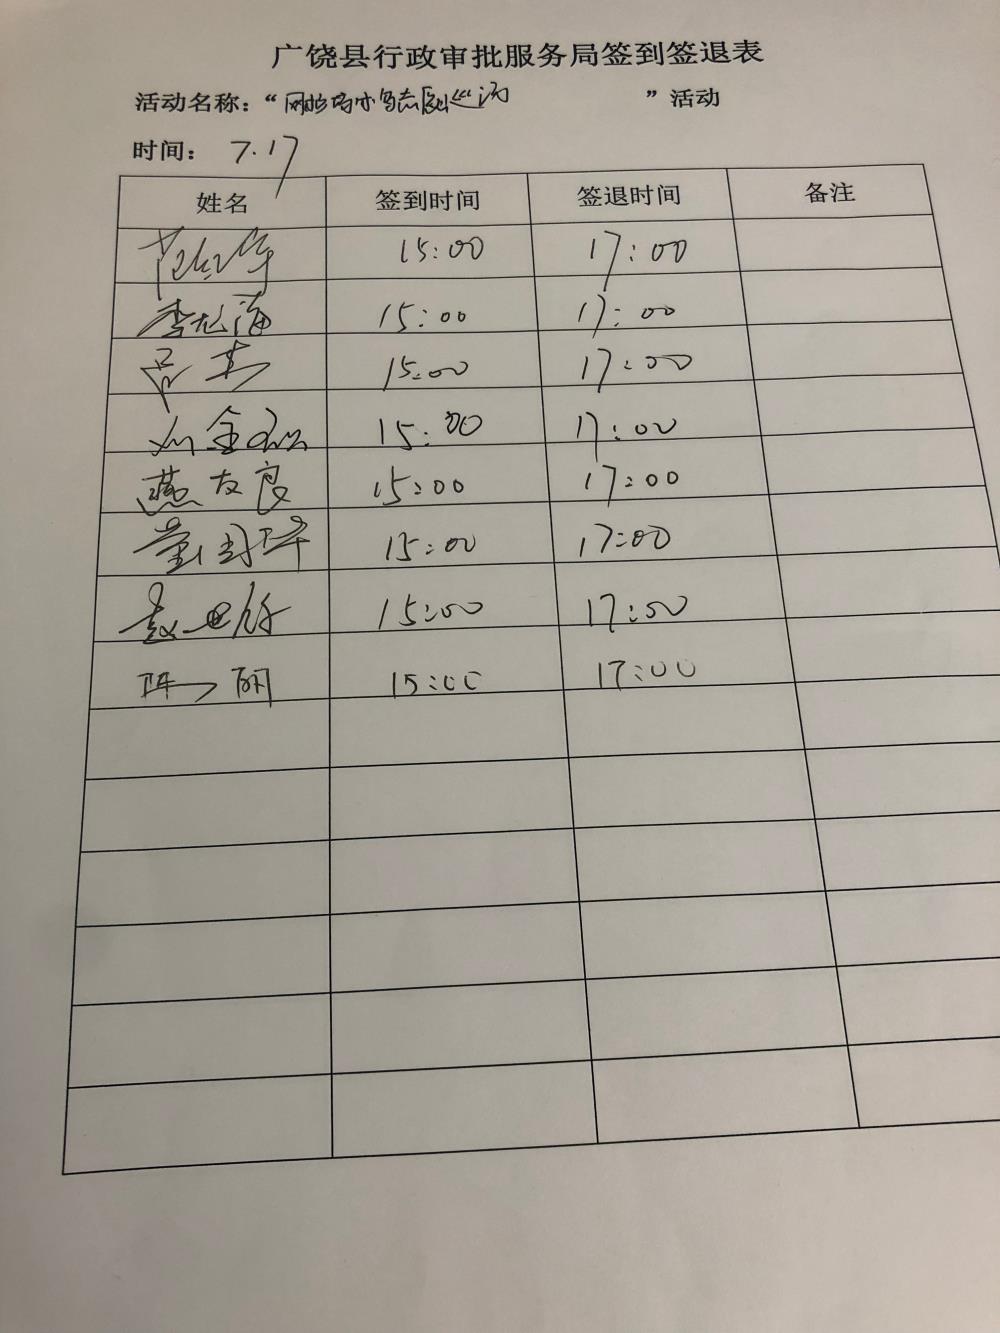 广饶县行政审批服务局签到签退表
活动名称：“ ”活动
时间： 7.17
姓名 签到时间 签退时间 备注
15:00 17:00
李龙海 15:00 17:00
吕杰 15:00 17:00
15:00 17:00
燕友良 15:00 17:00
15:00 17:00
赵 15:00 17:00
陈丽 15:00 17:00